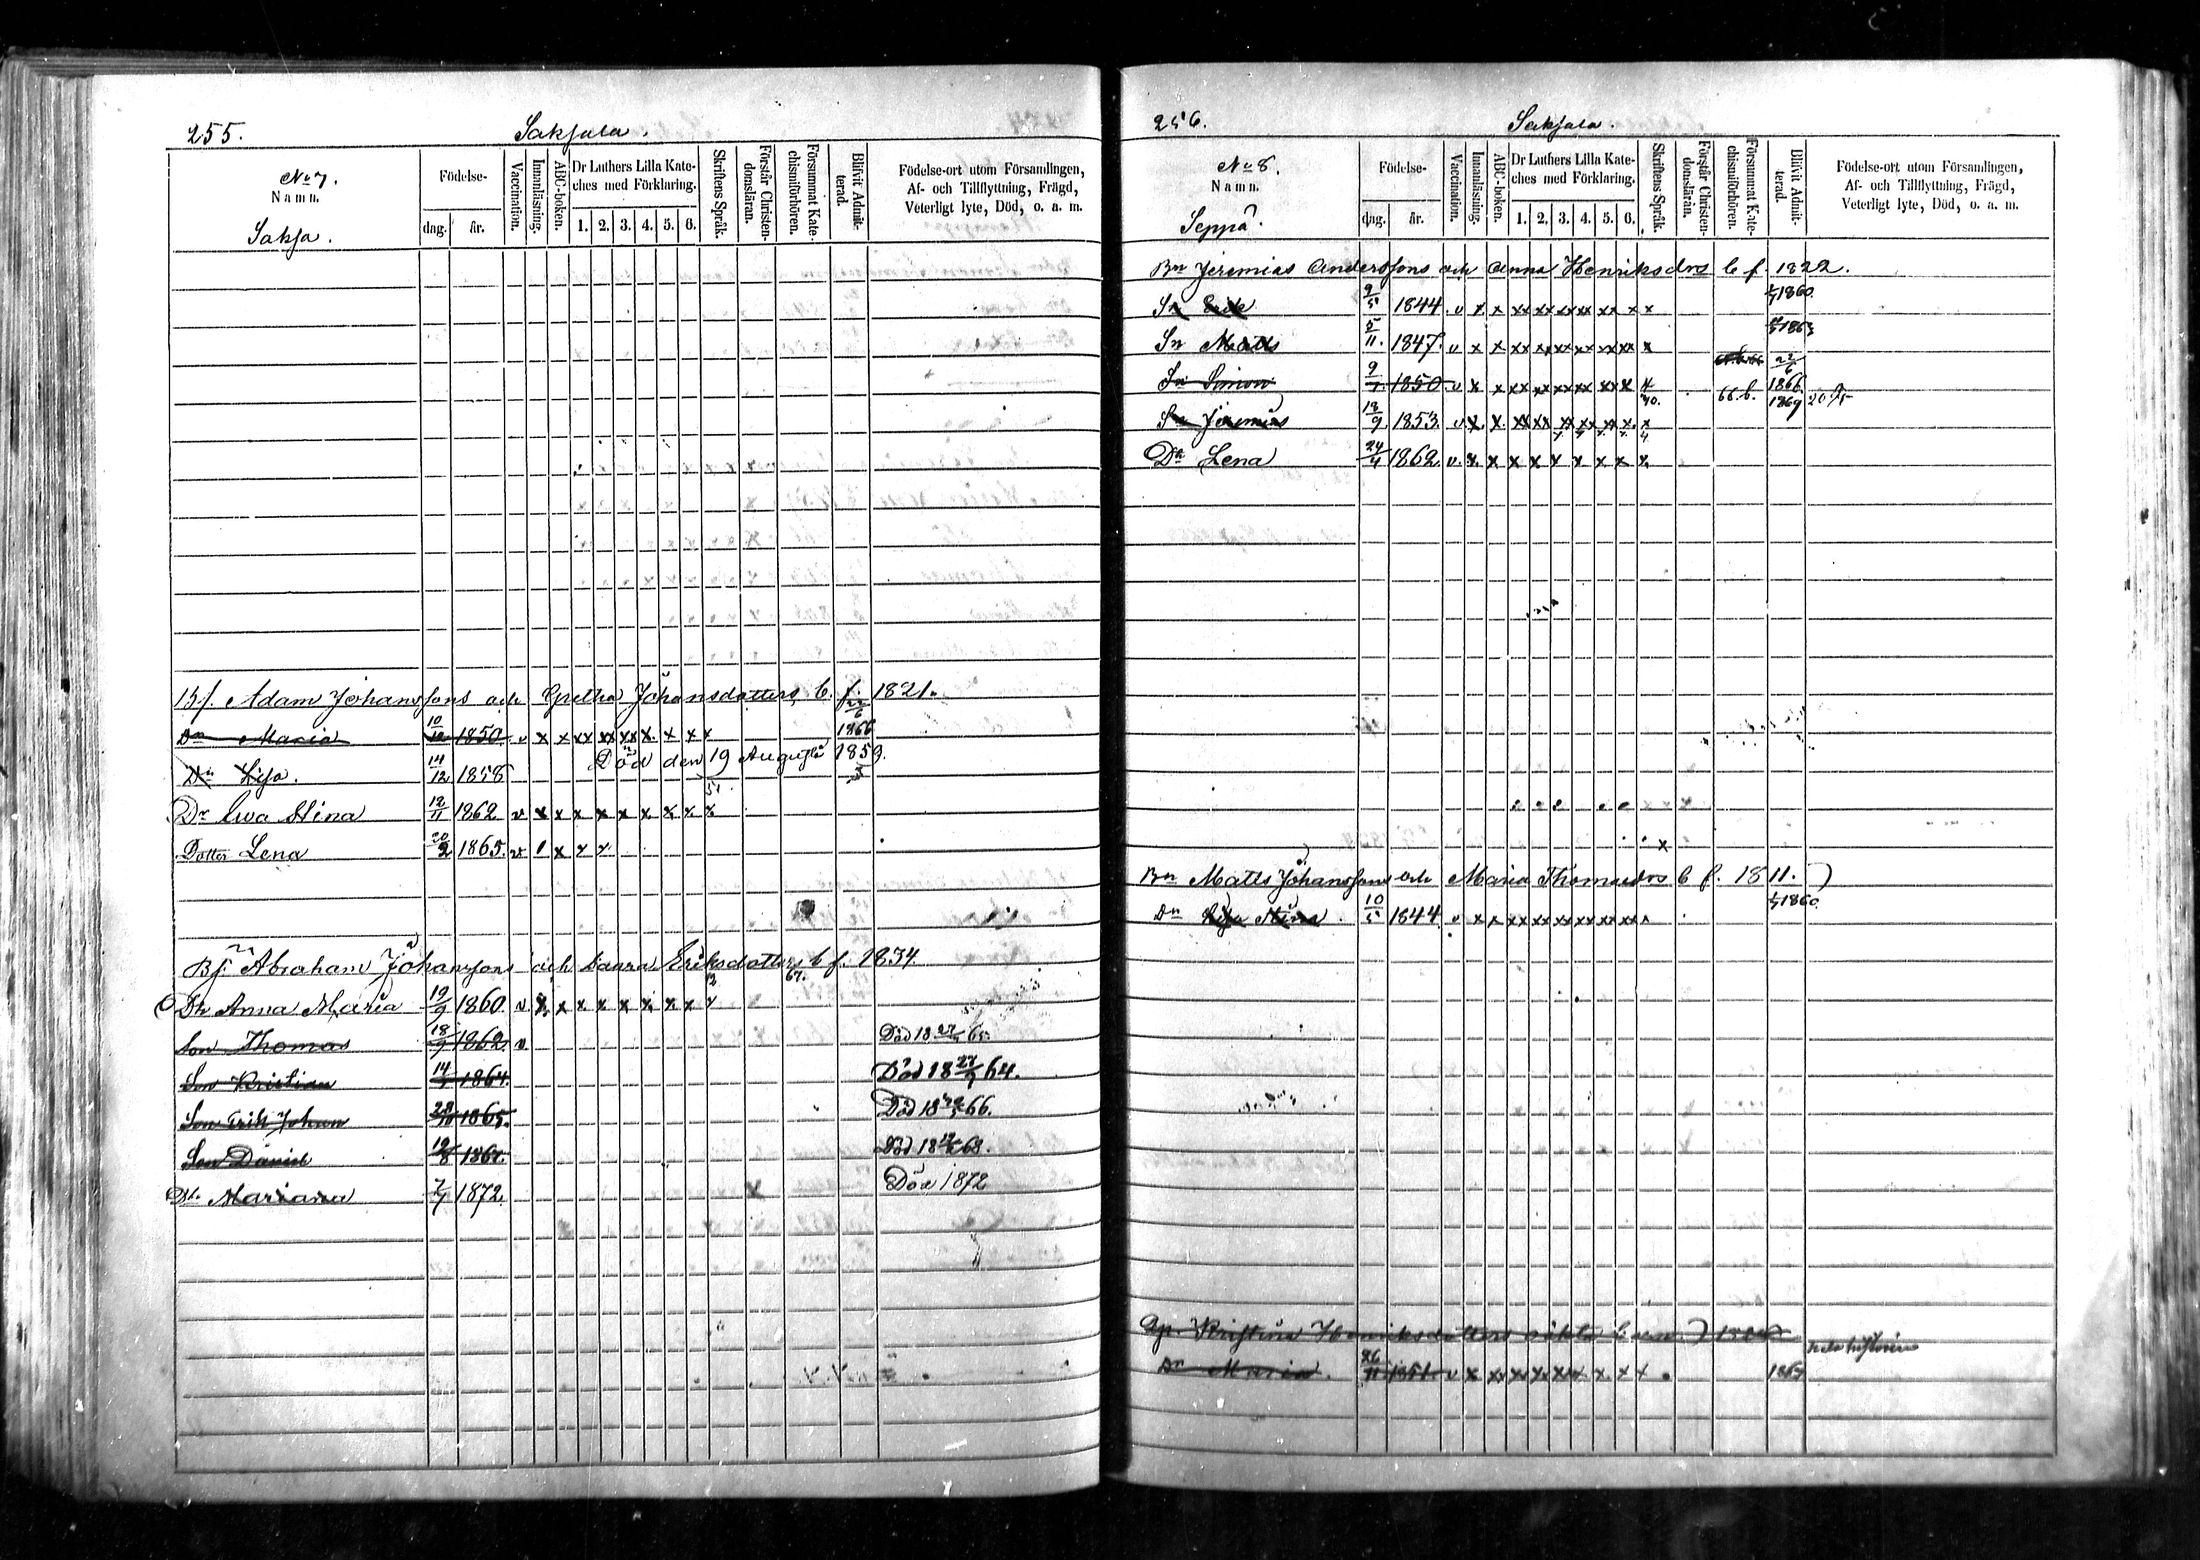 255.
Sakjala.
No 7.
Namn.
Sakja.
Födelse-
dag.
år.
Vaccination.
Innanläsning.
ABC-boken.
Dr Luthers Lilla Kate-
ches med Förklaring.
1. 2. 3. 4. 5. 6.
Skriftens Språk.
Förstår Christen-
domsläran.
Försummat Kate-
chismiförhören.
Blifvit Admit-
terad.
Födelse-ort utom Församlingen,
Af- och Tillflyttning, Frägd,
Veterligt lyte, Död, o. a. m.
Adam Johanssons och Gretha Johansdotters b. f. 1821.
22/6
Dr Maria 10/12 1850. v x x xx xx xx x. x x x 1866
Dr Lisa. 14/12 1858 Död den 19 Augusti 1859.
Dr Ewa Stina 12/11 1862 v x x x x x x x x x
Dotter Lena 20/2 1865. v x x x
Bf. Abraham Johanssons och Laura Eriksdotters b. f. 1834.
67.
Dr Anna Maria 19/9 1860. v x x x x x x x x x
Son Thomas 18/9 1862. v Död 18 65.
Son Kristian 1864. Död 18 27/9 64.
Son Erik Johan 1865. Död 18 66.
Son David 1867. Död 18 68.
Dr Mariana 1872. Död 1872
256.
Sakjala.
No 8.
Namn.
Seppä.
Födelse-
dag.
år.
Vaccination.
Innanläsning.
ABC-boken.
Dr Luthers Lilla Kate-
ches med Förklaring.
1. 2. 3. 4. 5. 6.
Skriftens Språk.
Förstår Christen-
domsläran.
Försummat Kate-
chismiförhören.
Blifvit Admit-
terad.
Födelse-ort utom Församlingen,
Af- och Tillflyttning, Frägd,
Veterligt lyte, Död, o. a. m.
Bn Jeremias Anderssons och Anna Henriksdrs b f. 1822.
Sn Erik 9/5 1844. v x x xx xx xx xx xx x x 1860.
Sn Matts 5/11. 1847. v x x xx xx xx xx xx xx x 1863
Sn Simon 1850. v x x xx xx xx xx xx x x 22/6 1866
Sn Jeremias 18/9 1853. v x. x. xx xx xx xx xx x. x 66.b. 1869
Dr Lena 24/4 1862. v. x. x x x x x x x x.
Bn Matts Johanssons och Maria Thomasdrs b f. 1811.
Dr Lisa Stina. 10/5 1844. v x x xx xx xx xx xx xx x 1860.
Kristina Henriksdotters
Dr Maria. 26/11 1851. v x xx xx xx xx xx x. x x